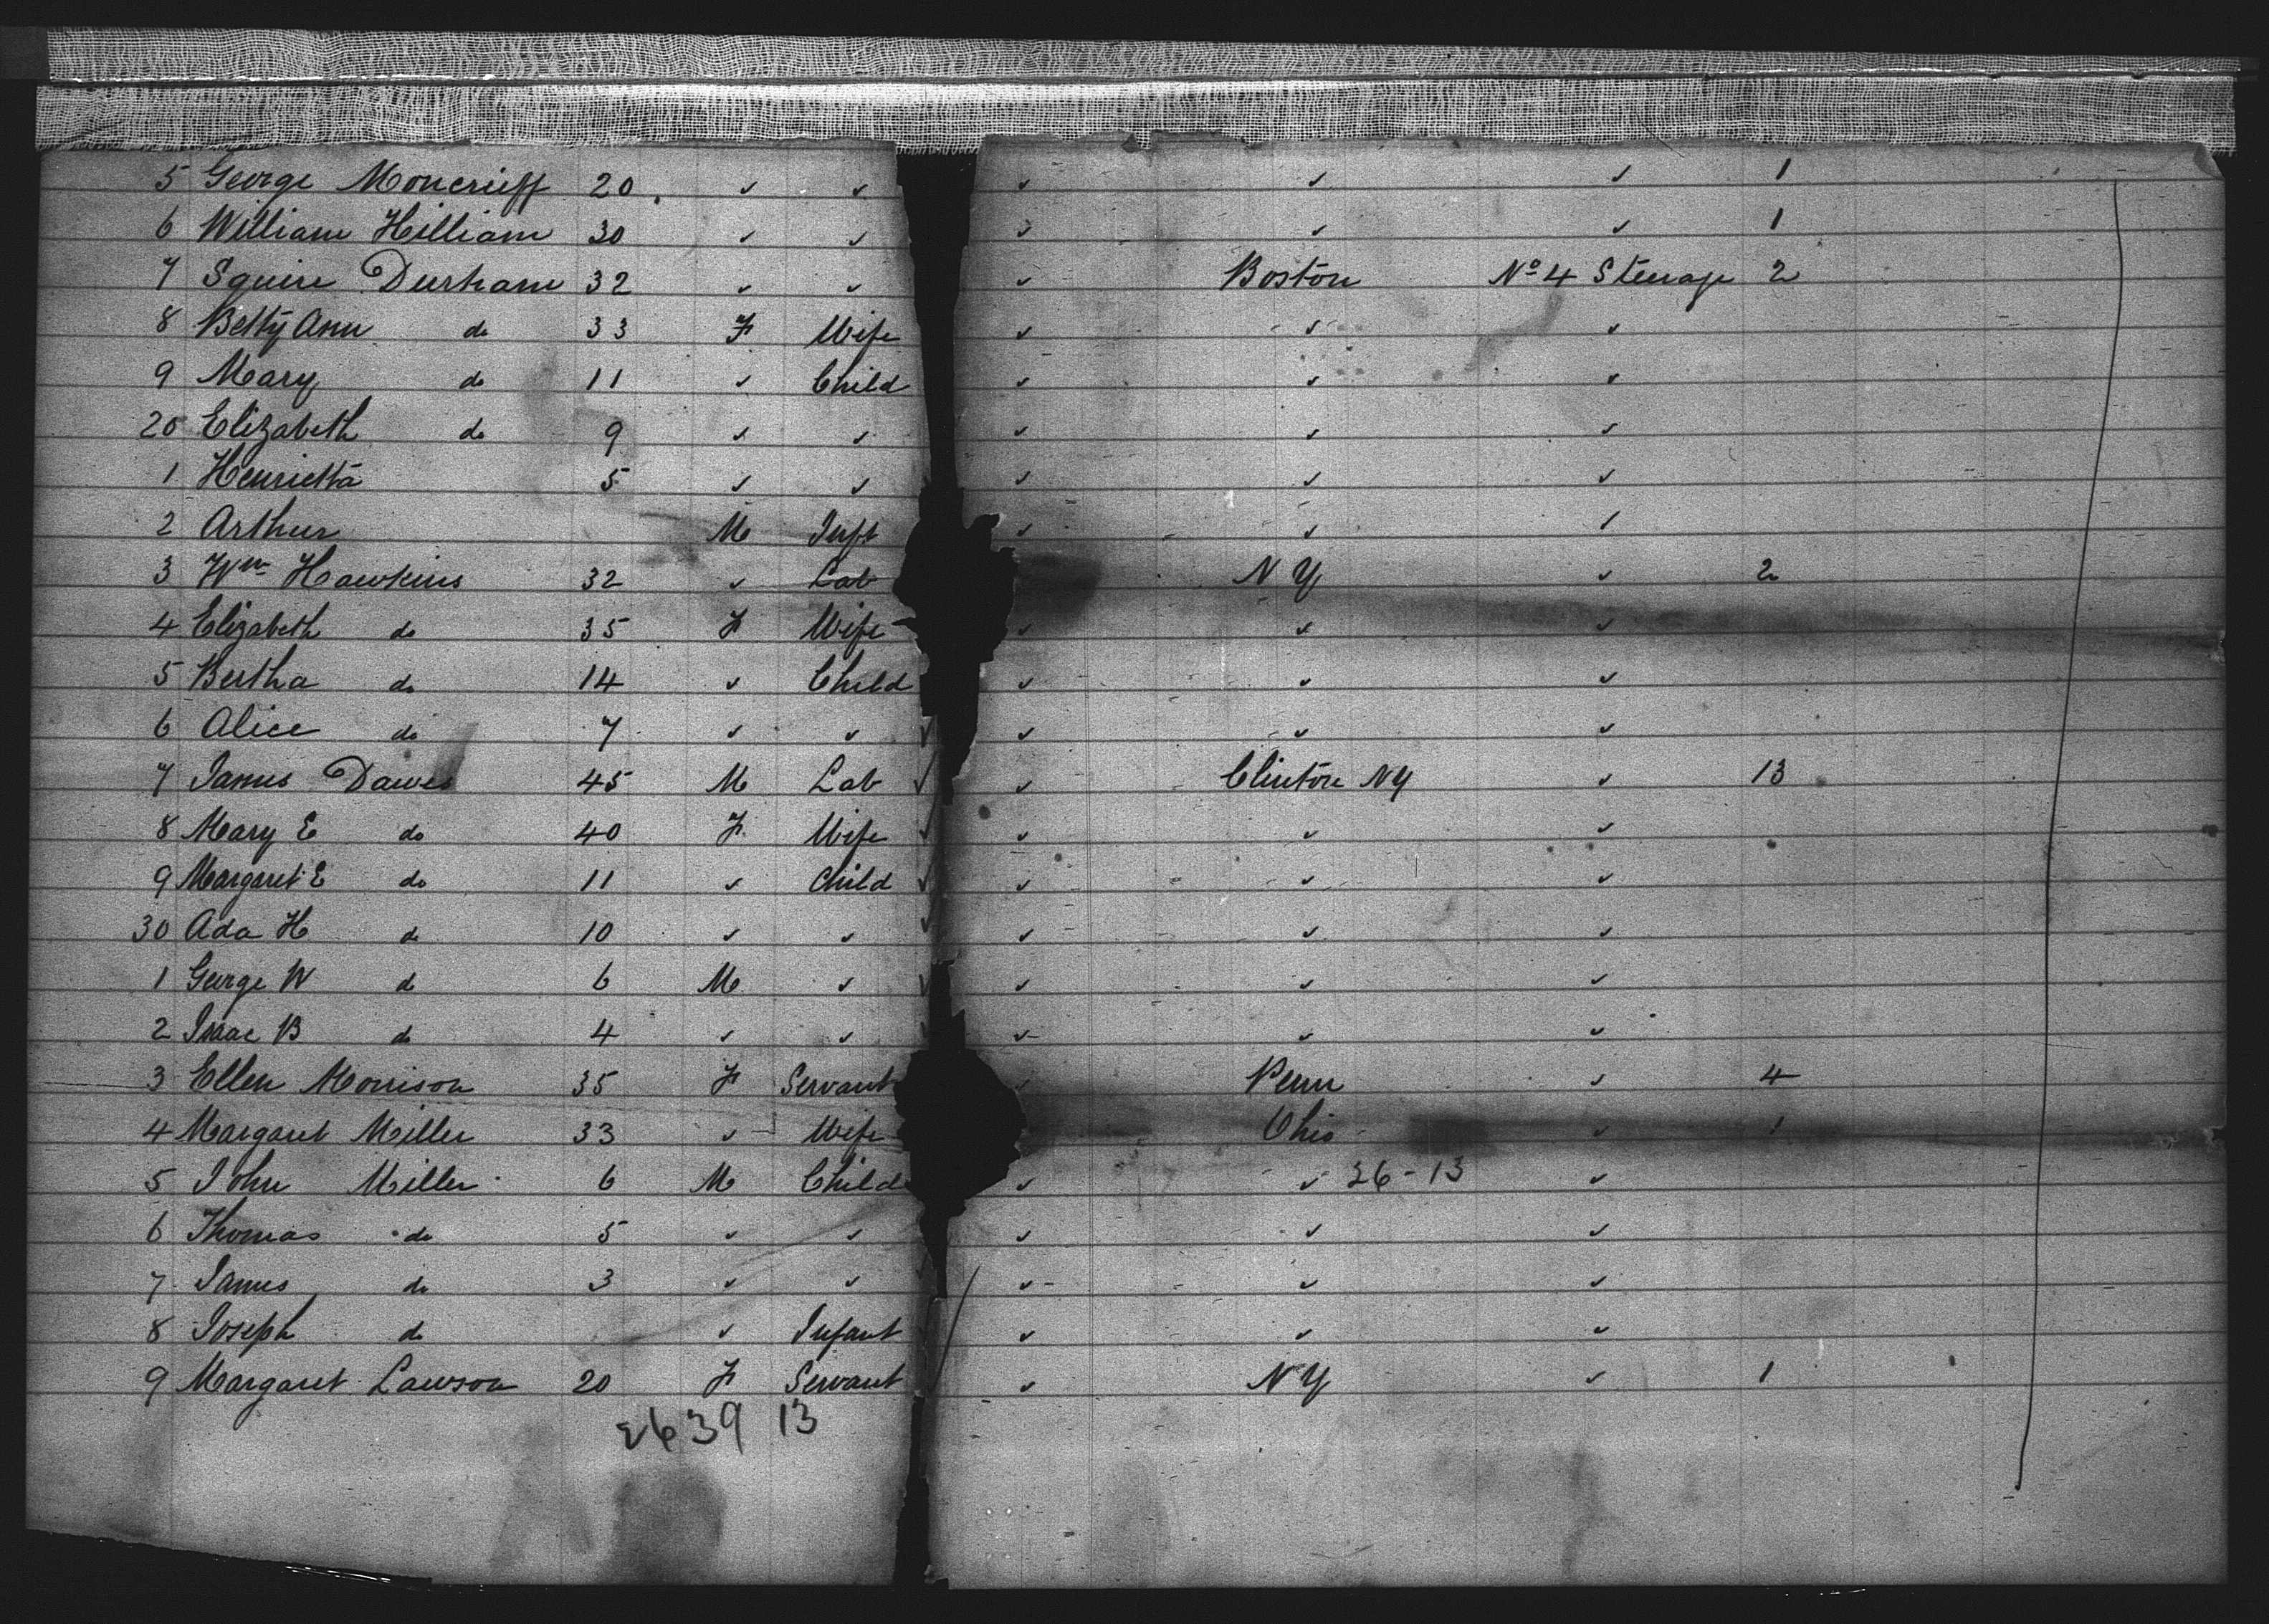 5 George Moncrieff 20 ✓ ✓ ✓ ✓ ✓ 1
6 William Hilliam 30 ✓ ✓ ✓ ✓ ✓ 1
7 Squire Durham 32 ✓ ✓ ✓ Boston No 4 Steerage 2
8 Betty Ann do 33 F Wife ✓ ✓ ✓
9 Mary do 11 ✓ Child ✓ ✓ ✓
20 Elizabeth do 9 ✓ ✓ ✓ ✓ ✓
1 Henrietta 5 ✓ ✓ ✓ ✓ ✓
2 Arthur M Inft ✓ ✓ ✓
3 Wm Hawkins 32 ✓ Lab N Y ✓ 2
4 Elizabeth do 35 F Wife ✓ ✓ ✓
5 Bertha do 14 ✓ Child ✓ ✓ ✓
6 Alice do 7 ✓ ✓ ✓ ✓ ✓ ✓
7 James Dawes 45 M Lab ✓ ✓ Clinton NY ✓ 13
8 Mary E do 40 F Wife ✓ ✓ ✓ ✓
9 Margaret E do 11 ✓ Child ✓ ✓ ✓ ✓
30 Ada H do 10 ✓ ✓ ✓ ✓ ✓ ✓
1 George W do 6 M ✓ ✓ ✓ ✓ ✓
2 Isaac B do 4 ✓ ✓ ✓ ✓ ✓ ✓
3 Ellen Morrison 35 F Servant ✓ Penn ✓ 4
4 Margaret Miller 33 ✓ Wife Ohio ✓ 1
5 John Miller 6 M Child ✓ ✓ 26-13 ✓
6 Thomas do 5 ✓ ✓ ✓ ✓ ✓
7 James do 3 ✓ ✓ ✓ ✓ ✓
8 Joseph do ✓ Infant ✓ ✓ ✓
9 Margaret Lawson 20 F Servant ✓ NY ✓ 1
2639 13